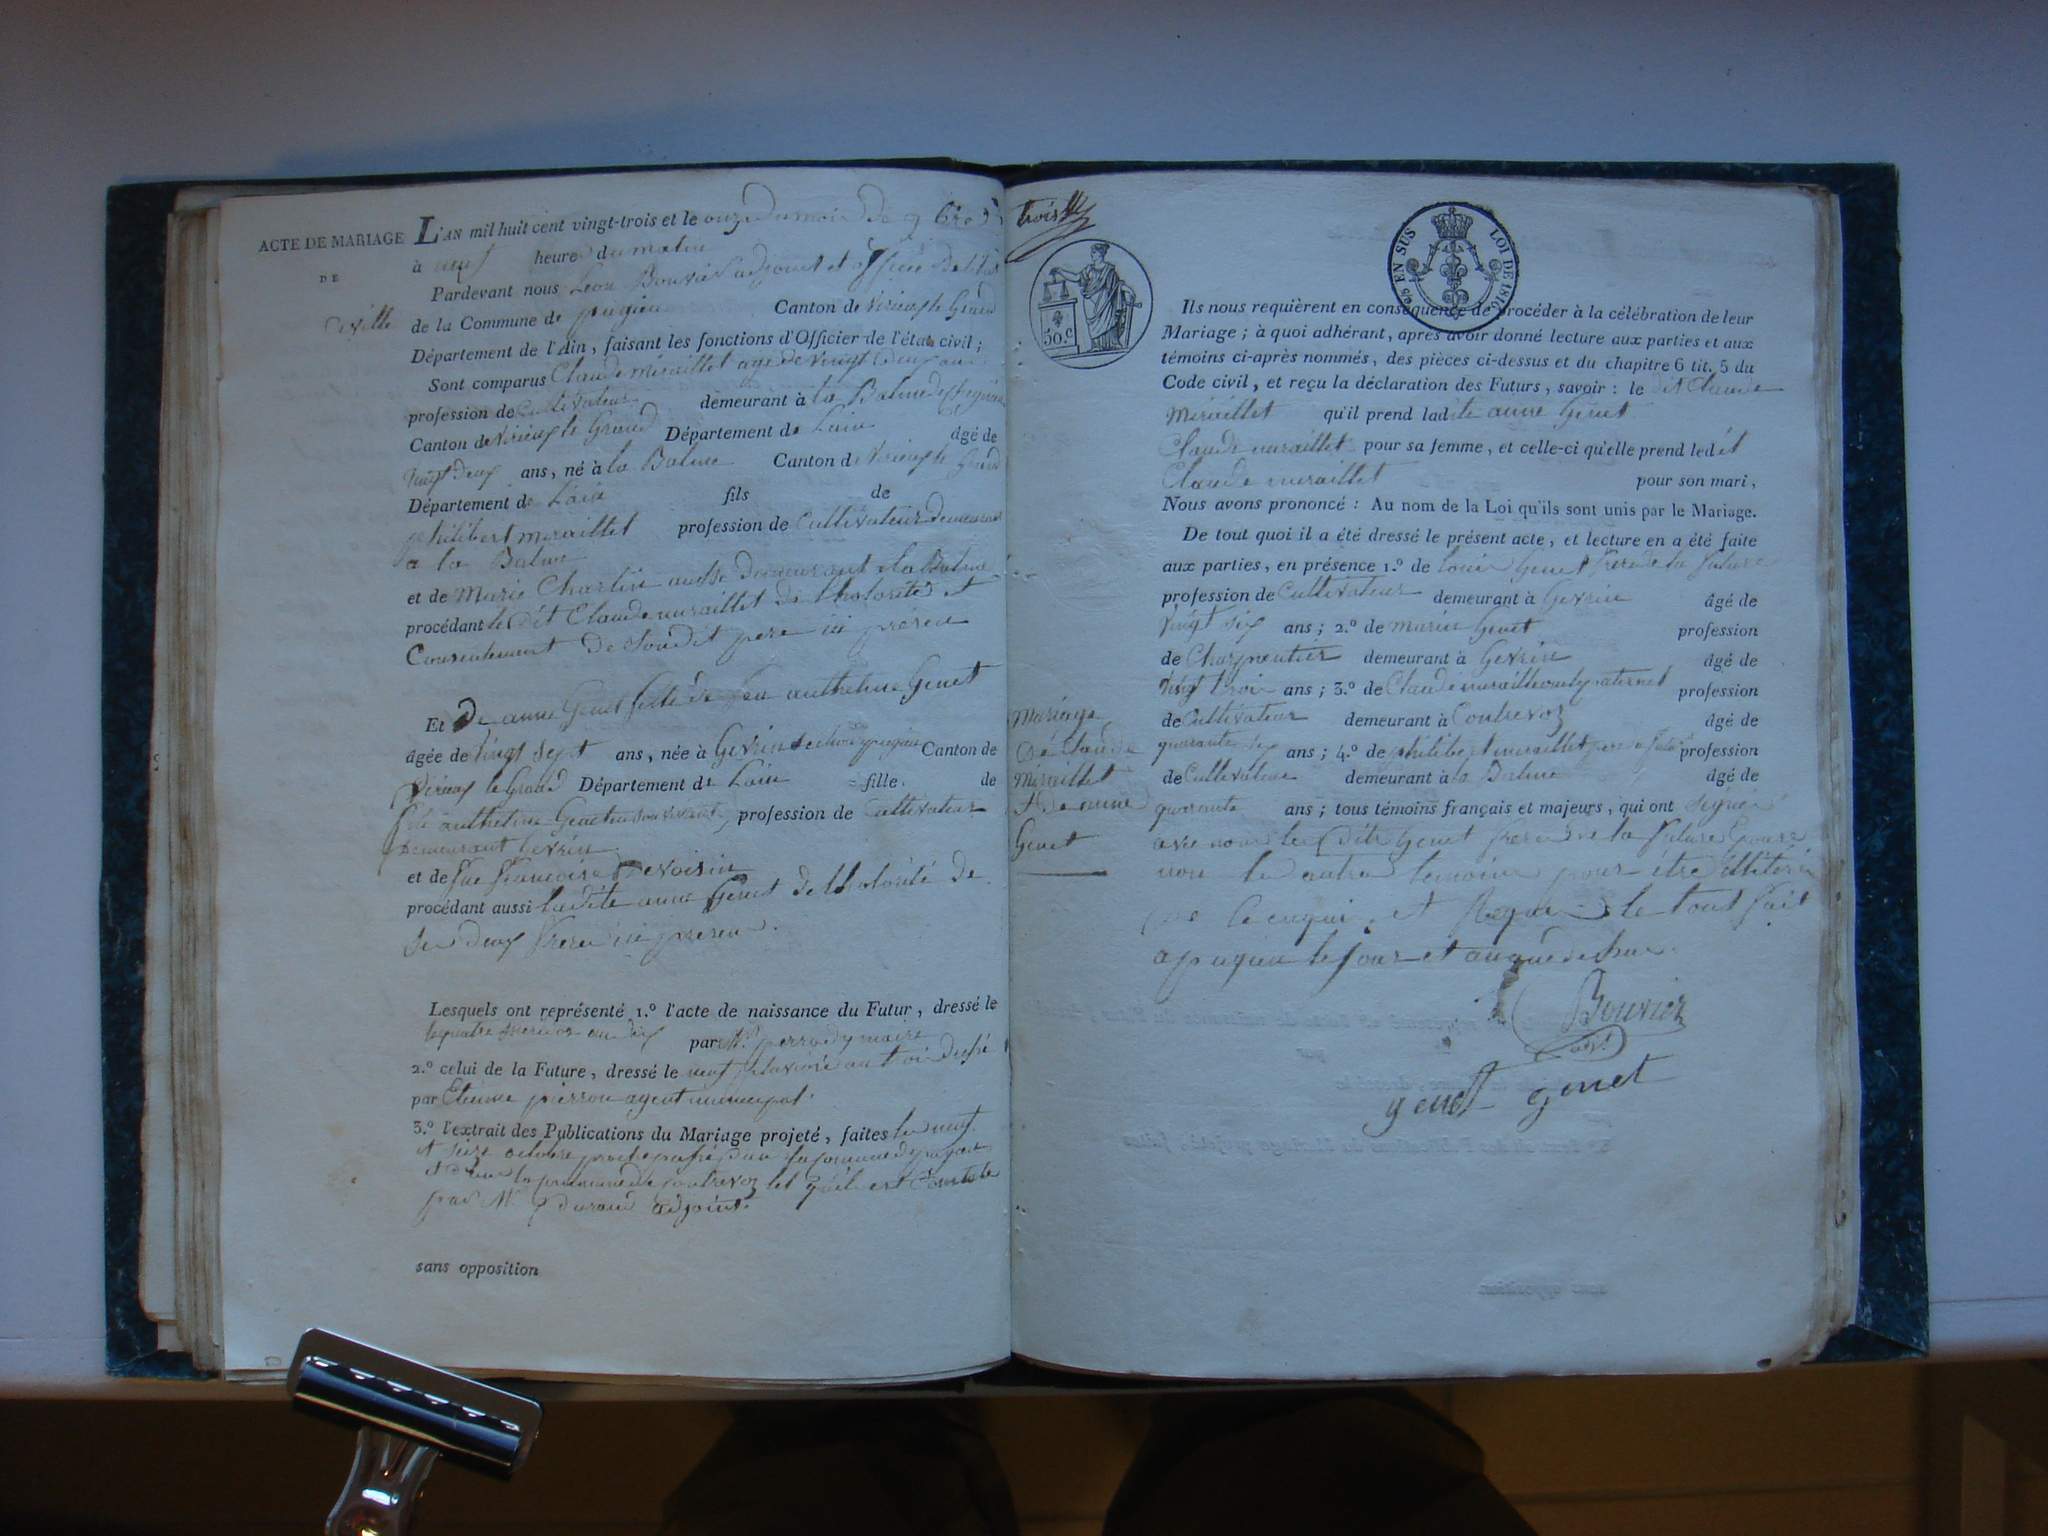 ACTE DE MARIAGE
DE
Civille
L'AN mil huit cent vingt-trois et le onze du mois de 9bre
à neuf heures du matin
Pardevant nous Leon Bouvier adjoint et officier de l'état
de la Commune de pugieu Canton de Virieux le Grand
Département de l'Ain, faisant les fonctions d'Officier de l'état civil ;
Sont comparus Claude miraillet agé de vingt deux ans
profession de Cultivateur demeurant à la Balme
Canton de Virieux le Grand Département de Lain âgé de
vingt deux ans, né à la Balme Canton de Virieux le Grand
Département de Lain fils de
philibert miraillet profession de Cultivateur demeurant
a la Balme
et de Marie Charlin aussi demeurant a la Balme
procédant le dit Claude miraillet de lhotorité et
Consentement de son dit pere ici présen
Et De anne Genet fille de feu anthelme Genet
âgée de vingt sept ans, née à Gevrin Canton de
Virieux le Grand Département de Lain fille de
feu anthelme Genet profession de Cultivateur
demeurant Gevrin
et de fue francoise Devoisin
procédant aussi ladite anne Genet de lhotorité de
ses deux freres ici presen.
Lesquels ont représenté 1.º l'acte de naissance du Futur, dressé le
par Mr perrody maire
2.º celui de la Future, dressé le neuf pluviose an trois dressé
par Etienne pierron agent municipal.
3.º l'extrait des Publications du Mariage projeté, faites le neuf
et seize octobre proche passé dan la commune de pugieu
et dan la commune de contrevoz tel qu'il est
par Mr durand adjoint.
sans opposition
trois
50 C
EN SUS LOI DE 1816
Ils nous requièrent en conséquence de procéder à la célébration de leur
Mariage ; à quoi adhérant, après avoir donné lecture aux parties et aux
témoins ci-après nommés, des pièces ci-dessus et du chapitre 6 tit. 5 du
Code civil, et reçu la déclaration des Futurs, savoir : le dit Claude
Miraillet qu'il prend ladite anne Genet
Claude miraillet pour sa femme, et celle-ci qu'elle prend ledit
Claude miraillet pour son mari,
Nous avons prononcé : Au nom de la Loi qu'ils sont unis par le Mariage.
De tout quoi il a été dressé le présent acte, et lecture en a été faite
aux parties, en présence 1.º de louis Genet frere de la future
profession de Cultivateur demeurant à Gevrin âgé de
vingt six ans ; 2.º de marin Genet profession
de Charpentier demeurant à Gevrin âgé de
vingt trois ans ; 3.º de Claude miraillet oncle paternel profession
de Cultivateur demeurant à Contrevoz âgé de
quarante six ans ; 4.º de philibert miraillet pere profession
de Cultivateur demeurant à la Balme âgé de
quarante ans ; tous témoins français et majeurs, qui ont signé
avec nous les dits Genet freres de la future Epouse
non les autres temoins pour être illiterés
de ce enquis et Requis le tout fait
a pugieu le jour et an que dessus.
Mariage
de Claude
Miraillet
et de anne
Genet
Bouvier
adjt
genet genet